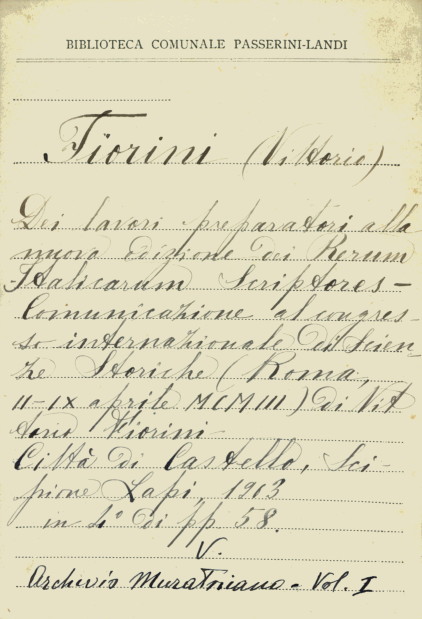 BIBLIOTECA COMUNALE PASSERINI-LANDI
Fiorini (Vittorio)
Dei lavori preparatori alla
nuova edizione dei Rerum
Italicarum Scriptores -
Comunicazione al congres-
so internazionale di Scien-
ze Storiche (Roma,
II-IX aprile MCMIII) di Vit
torio Fiorini -
Città di Castello, Sci-
pione Lapi, 1903
in 4° di pp 58.
V.
Archivio Muratoriano - Vol. I